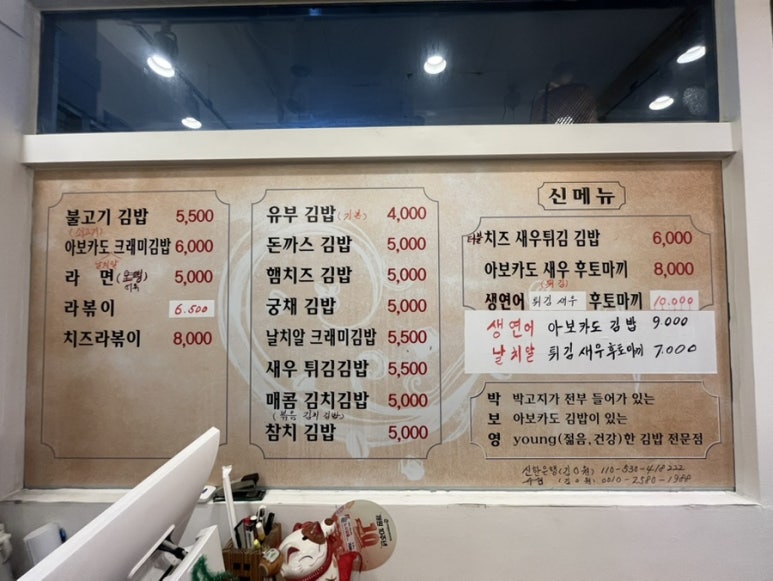 불고기 김밥 5,500
(소고기)
아보카도 크래미김밥 6,000
날치알
라 면 5,000
라볶이 6.500
치즈라볶이 8,000
유부 김밥 (기본) 4,000
돈까스 김밥 5,000
햄치즈 김밥 5,000
궁채 김밥 5,000
날치알 크래미김밥 5,500
새우 튀김김밥 5,500
매콤 김치김밥 5,000
(볶음 김치 김밥)
참치 김밥 5,000
신메뉴
더블 치즈 새우튀김 김밥 6,000
아보카도 새우 후토마끼 8,000
(튀김)
생연어 튀김 새우 후토마끼 10.000
생연어 아보카도 김밥 9.000
날치알 튀김 새우 후토마끼 7.000
박 박고지가 전부 들어가 있는
보 아보카도 김밥이 있는
영 young(젊음,건강)한 김밥 전문점
신한은행